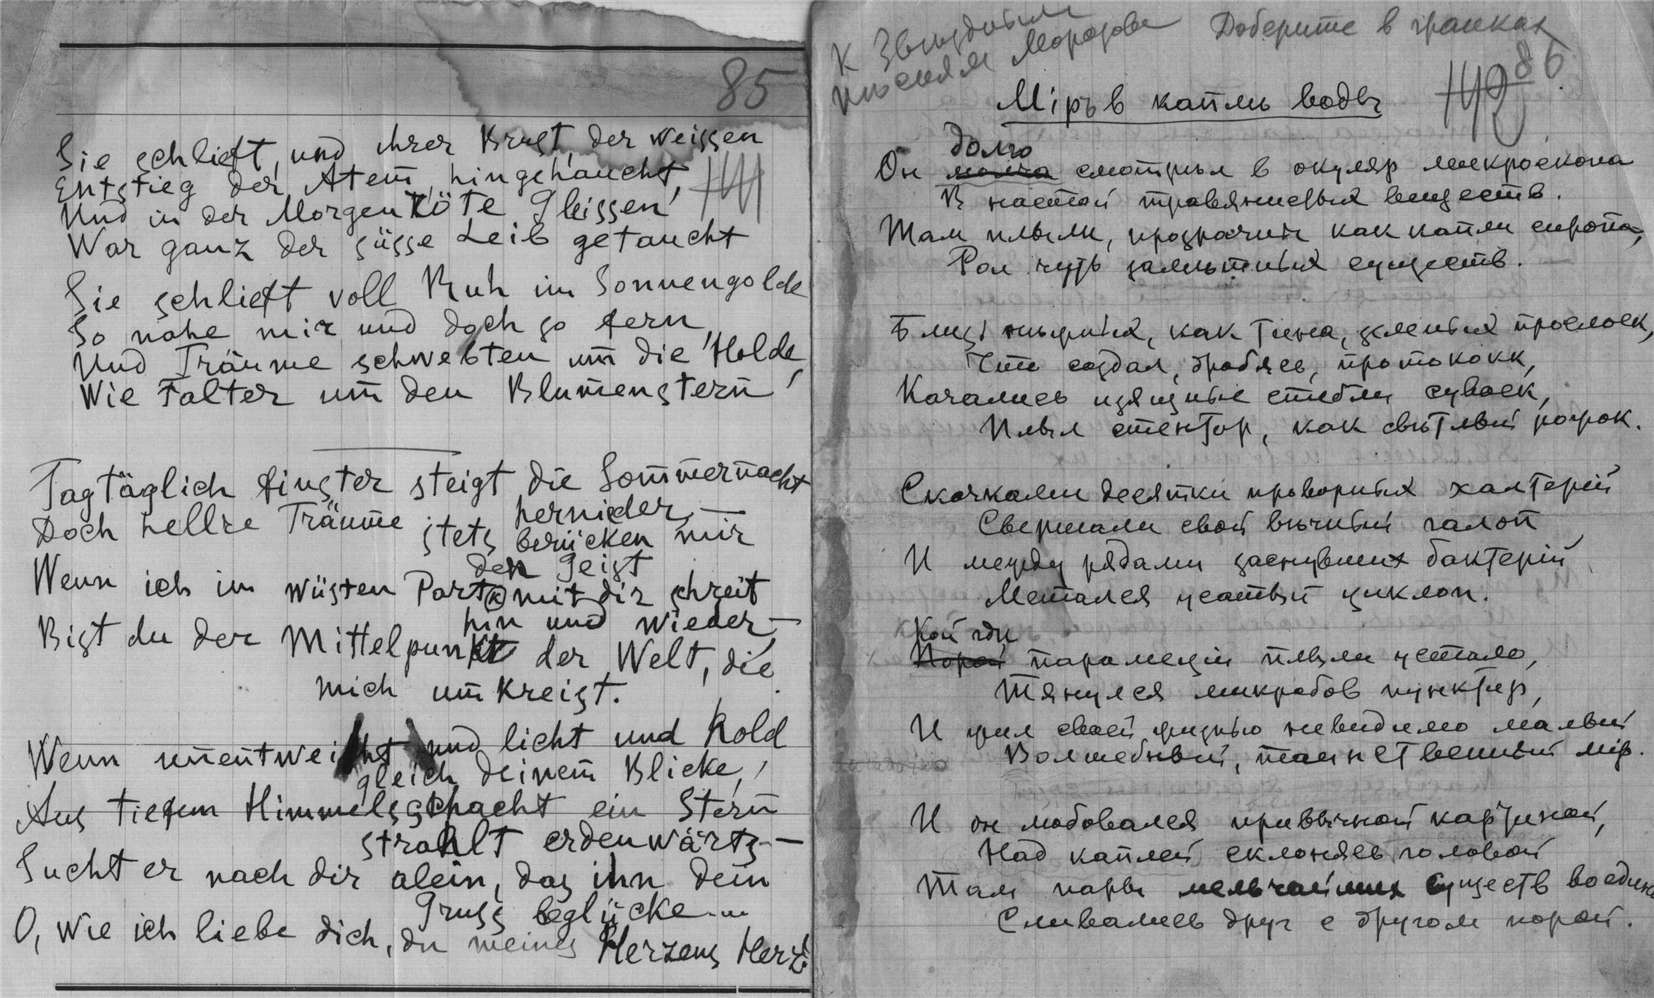 85
Sie schlieft, und ihrer Brust, der weissen
Entstieg der Atem, hingehaucht,
141
Und in der Morgenröte Gleissen
War ganz der süsse Leib getaucht
Sie schlieft voll Ruh im Sonnengolde
So nahe mir und doch so fern,
Und Träume schwebten um die Holde,
Wie Falter um den Blumenstern!
Tagtäglich finster steigt die Sommernacht
hernieder, —
Doch hellre Träume stets berücken mir
den Geist
Wenn ich im wüsten Park mit dir schreit
hin und wieder, —
Bist du der Mittelpunkt der Welt, die
mich umkreist.
Wenn unentweiht und licht und hold
gleich deinem Blicke,
Aus tiefem Himmelsschacht ein Stern
strahlt erdenwärts —
Sucht er nach dir alein, das ihn dein
Gruss beglücke ...
O, wie ich liebe dich, du meines Herzens Herz!
К Звѣздным
пѣсням Морозова
Доберите в гранках
86
142
Мiръ в каплѣ воды
долго
Он молча смотрѣл в окуляр микроскопа
В настой травянистых веществ.
Там плыли, прозрачнѣе капли сиропа,
Рои чуть замѣтных существ.
Близ нѣжных, как тина, зеленых прослоек,
Что создал, дробясь, протококк,
Качались изящные стебли сувоек,
Плыл стентор, как свѣтлый рожок.
Скачками десятки проворных халтерiй
Свершали свой вѣчный галоп
И между рядами заснувших бактерiй
Метался усатый циклоп.
Кой гдѣ
Порой парамецiи плыли устало,
Тянулся микробов пунктир,
И жил своей жизнью невидимо малый
Волшебный, таинственный мiр.
И он любовался привычной картиной,
Над каплей склоняясь головой
Там пары мельчайших существ воедино
Сливались друг с другом порой.